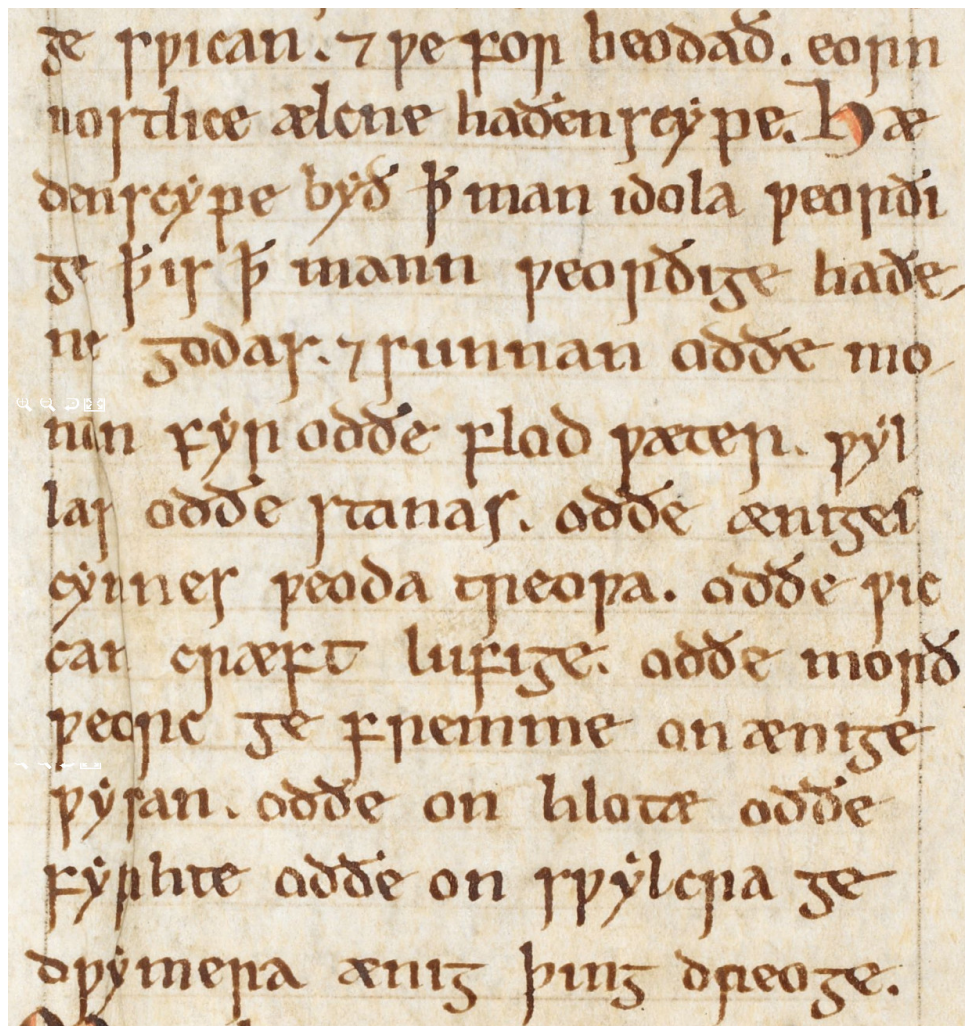 ge swican. ⁊ we for beodað. eorn
nostlice ælcne haðenscype. Hæ
denscype byð ꝥ man idola weorði
ge ꝥ is ꝥ mann weorðige haðe
ne godas. ⁊ sunnan oððe mo
nan fyr oððe flod wæter. wyl
las oððe stanas. oððe æniges
cynnes weoda treowa. oððe wic
can cræft lufige. oððe morð
weorc ge fremme on ænige
wysan. oððe on hlotæ oððe
fyrhte oððe on swylcra ge
dwymera ænig þing dreoge.